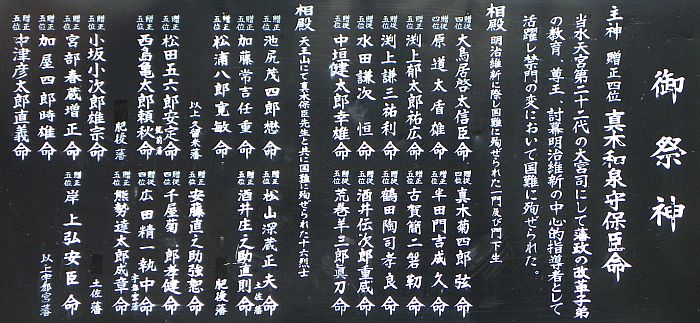 御祭神
主神 贈正四位 真木和泉守保臣命
当水天宮第二十二代の大宮司にして藩政の改革子弟
の教育、尊王、討幕明治維新の中心的指導者として
活躍し禁門の変において国難に殉ぜられた。
相殿 明治維新に際し国難に殉ぜられた一門及び門下生
贈従四位 大鳥居啓太信臣命 贈従四位 真木菊四郎弦命
贈従四位 原道太盾雄命 贈正五位 半田門吉成久命
贈正五位 渕上郁太郎祐広命 贈正五位 古賀簡二磐勒命
贈正五位 渕上謙三祐利命 贈正五位 鶴田陶司孝良命
贈正五位 水田謙次恒命 贈正五位 酒井伝次郎重威命
贈従五位 中垣健太郎幸雄命 贈従五位 荒巻羊三郎真刀命
相殿 天王山にて真木保臣先生と共に国難に殉ぜられた十六烈士
贈正五位 池尻茂四郎懋命 贈正五位 松山深蔵正夫命 土佐藩
贈正五位 加藤常吉任重命 贈正五位 酒井庄之助直則命
贈正五位 松浦八郎寛敏命 肥後藩
以上久留米藩 贈正五位 安藤直之助強恕命
贈正五位 松田五六郎安定命 肥前藩 贈従四位 千屋菊二郎孝健命
贈正五位 西島亀太郎頼秋命 贈従四位 広田精一執中命 宇都宮藩
肥後藩 贈正五位 能勢達太郎成章命
贈正五位 小坂小次郎雄宗命 土佐藩
贈正五位 宮部春蔵増正命 贈正五位 岸上弘安臣命
贈正五位 加屋四郎時雄命 以上宇都宮藩
贈正五位 中津彦太郎直義命